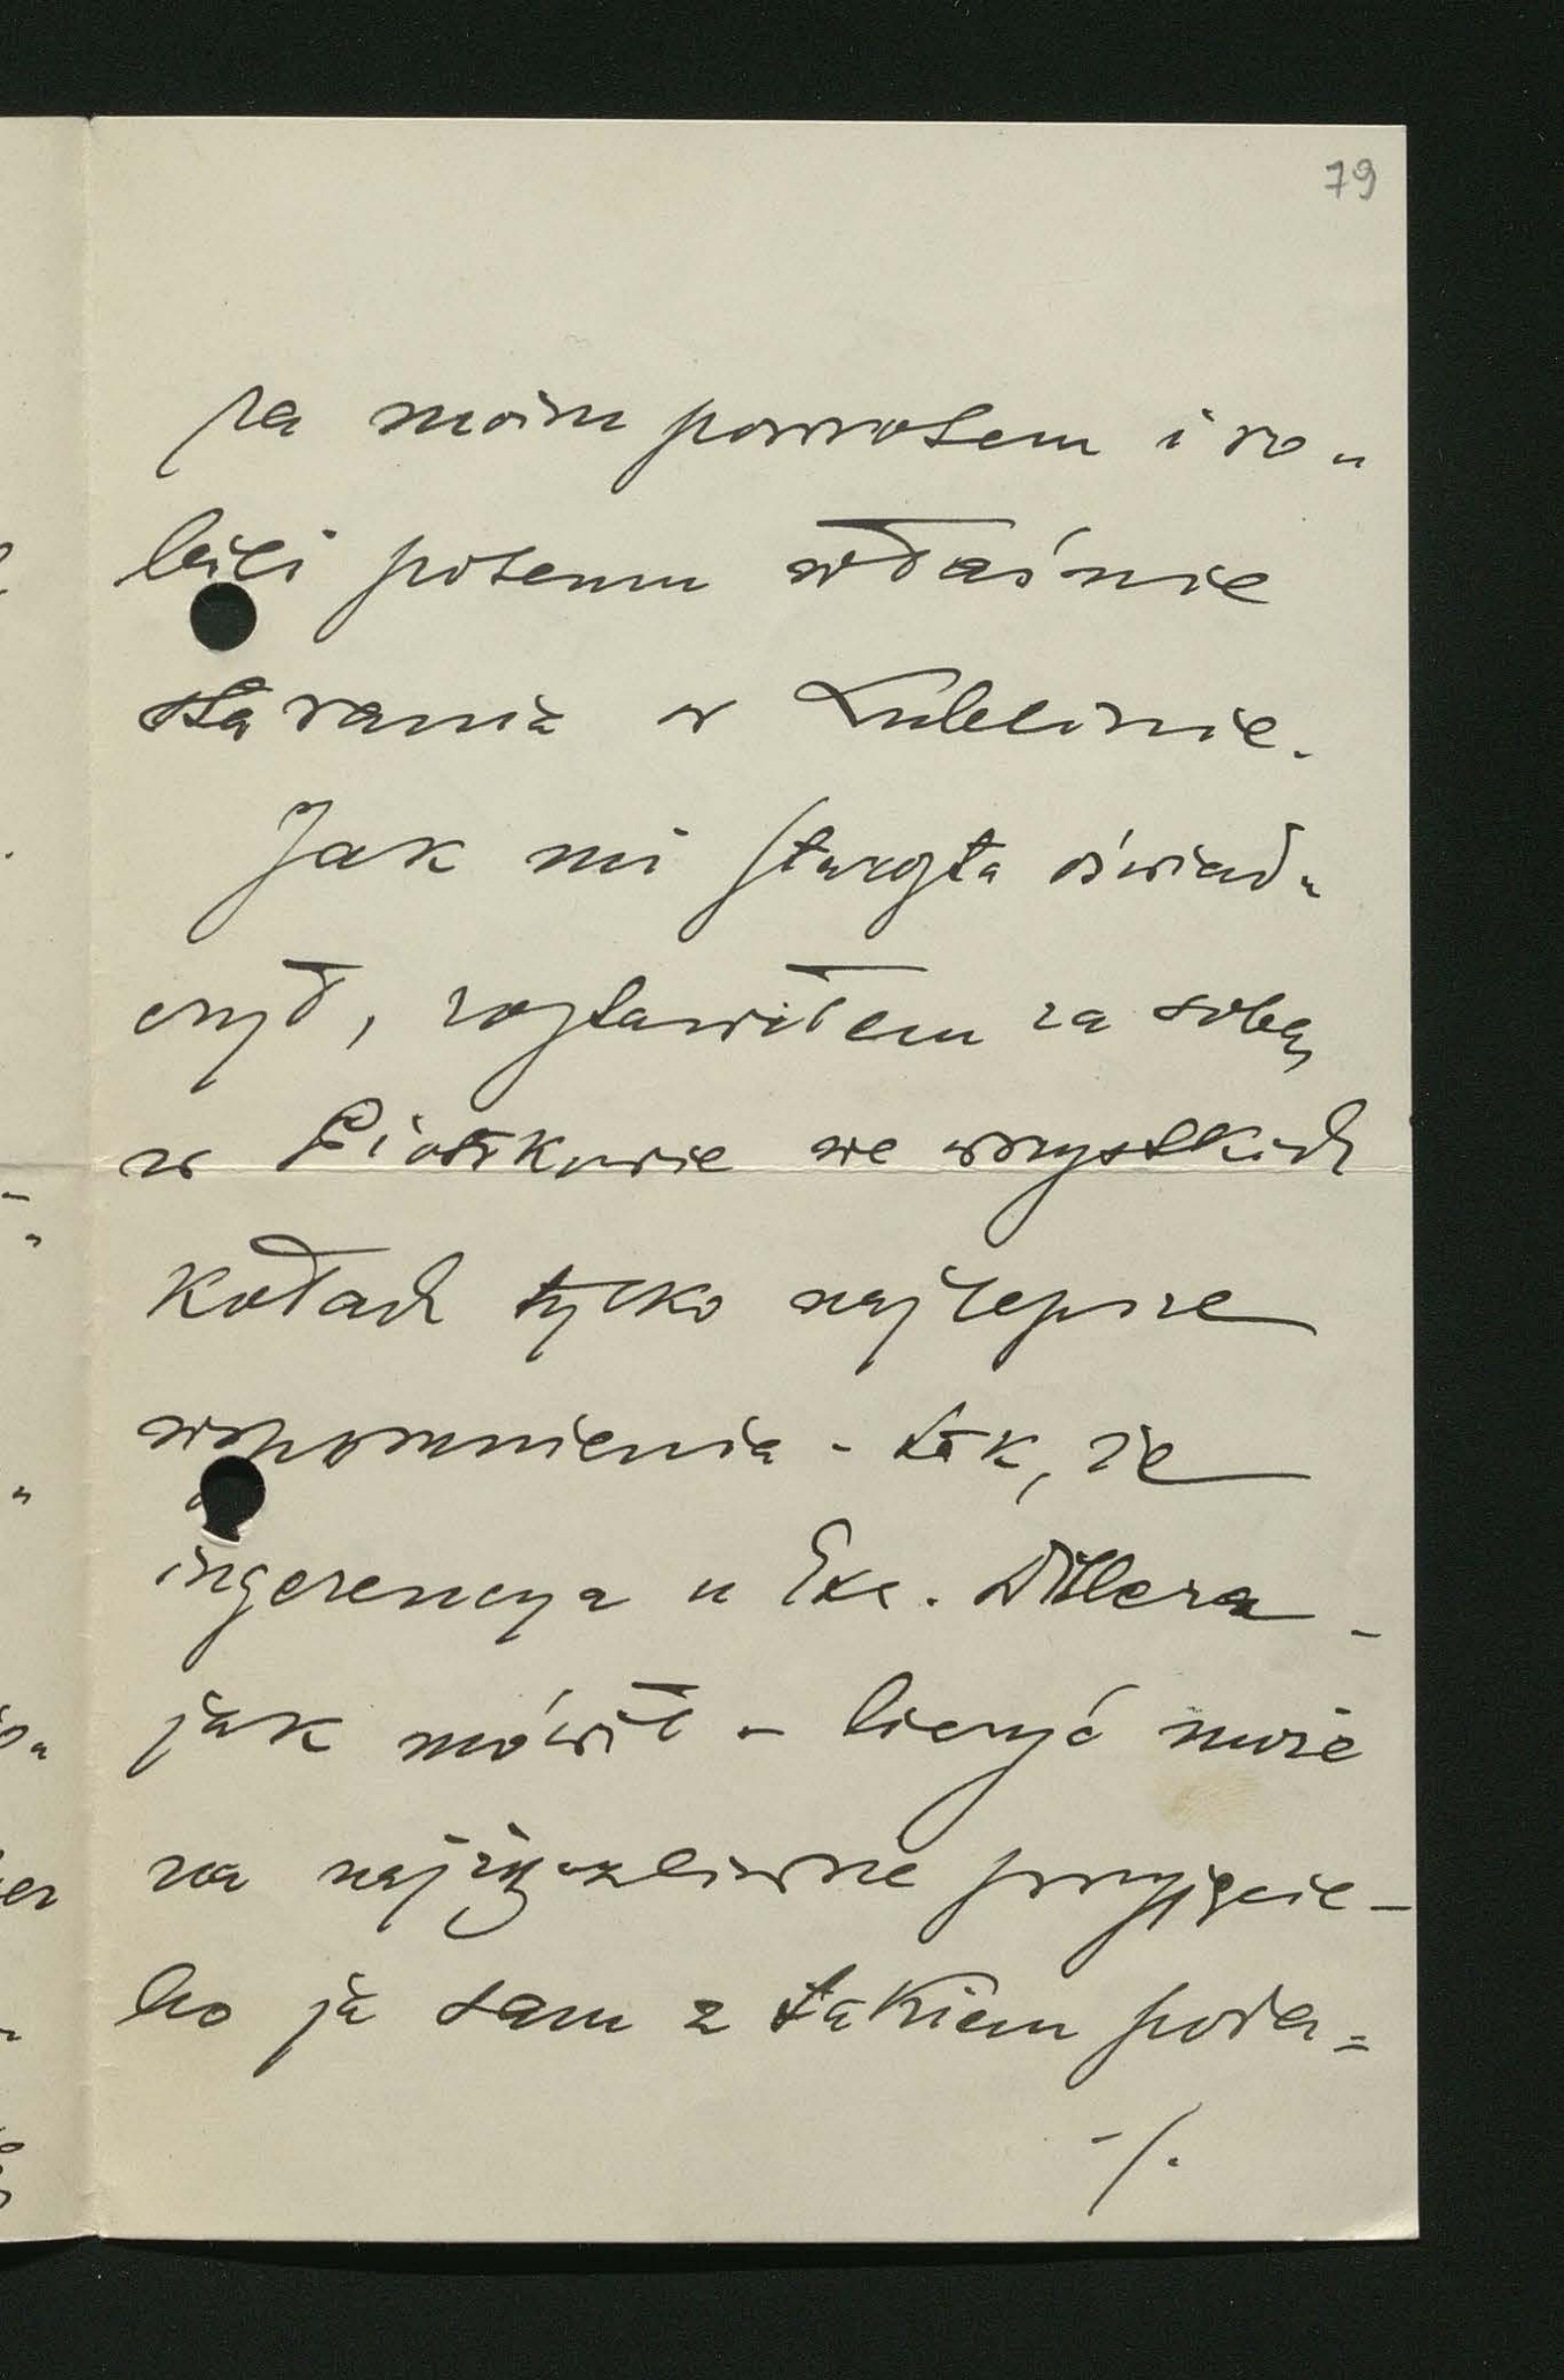 79
za moim powrotem i ro-
bili potemu właśnie
starania w Lublinie.
Jak mi starosta oświad-
czył, zostawiłem za sobą
w Piotrkowie we wszystkich
kołach tylko najlepsze
wspomnienia - tak, że
ingerencya u Exc. Dillera -
jak mówił - liczyć może
na najżyczliwsze przyjęcie -
bo ja sam z takiem poda=
-/.